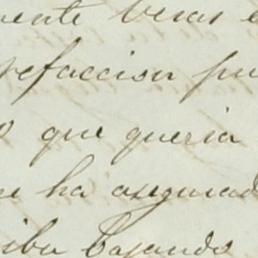 ente veras e
refaccion pu
o que queria
e ha asegurad
iba bajando